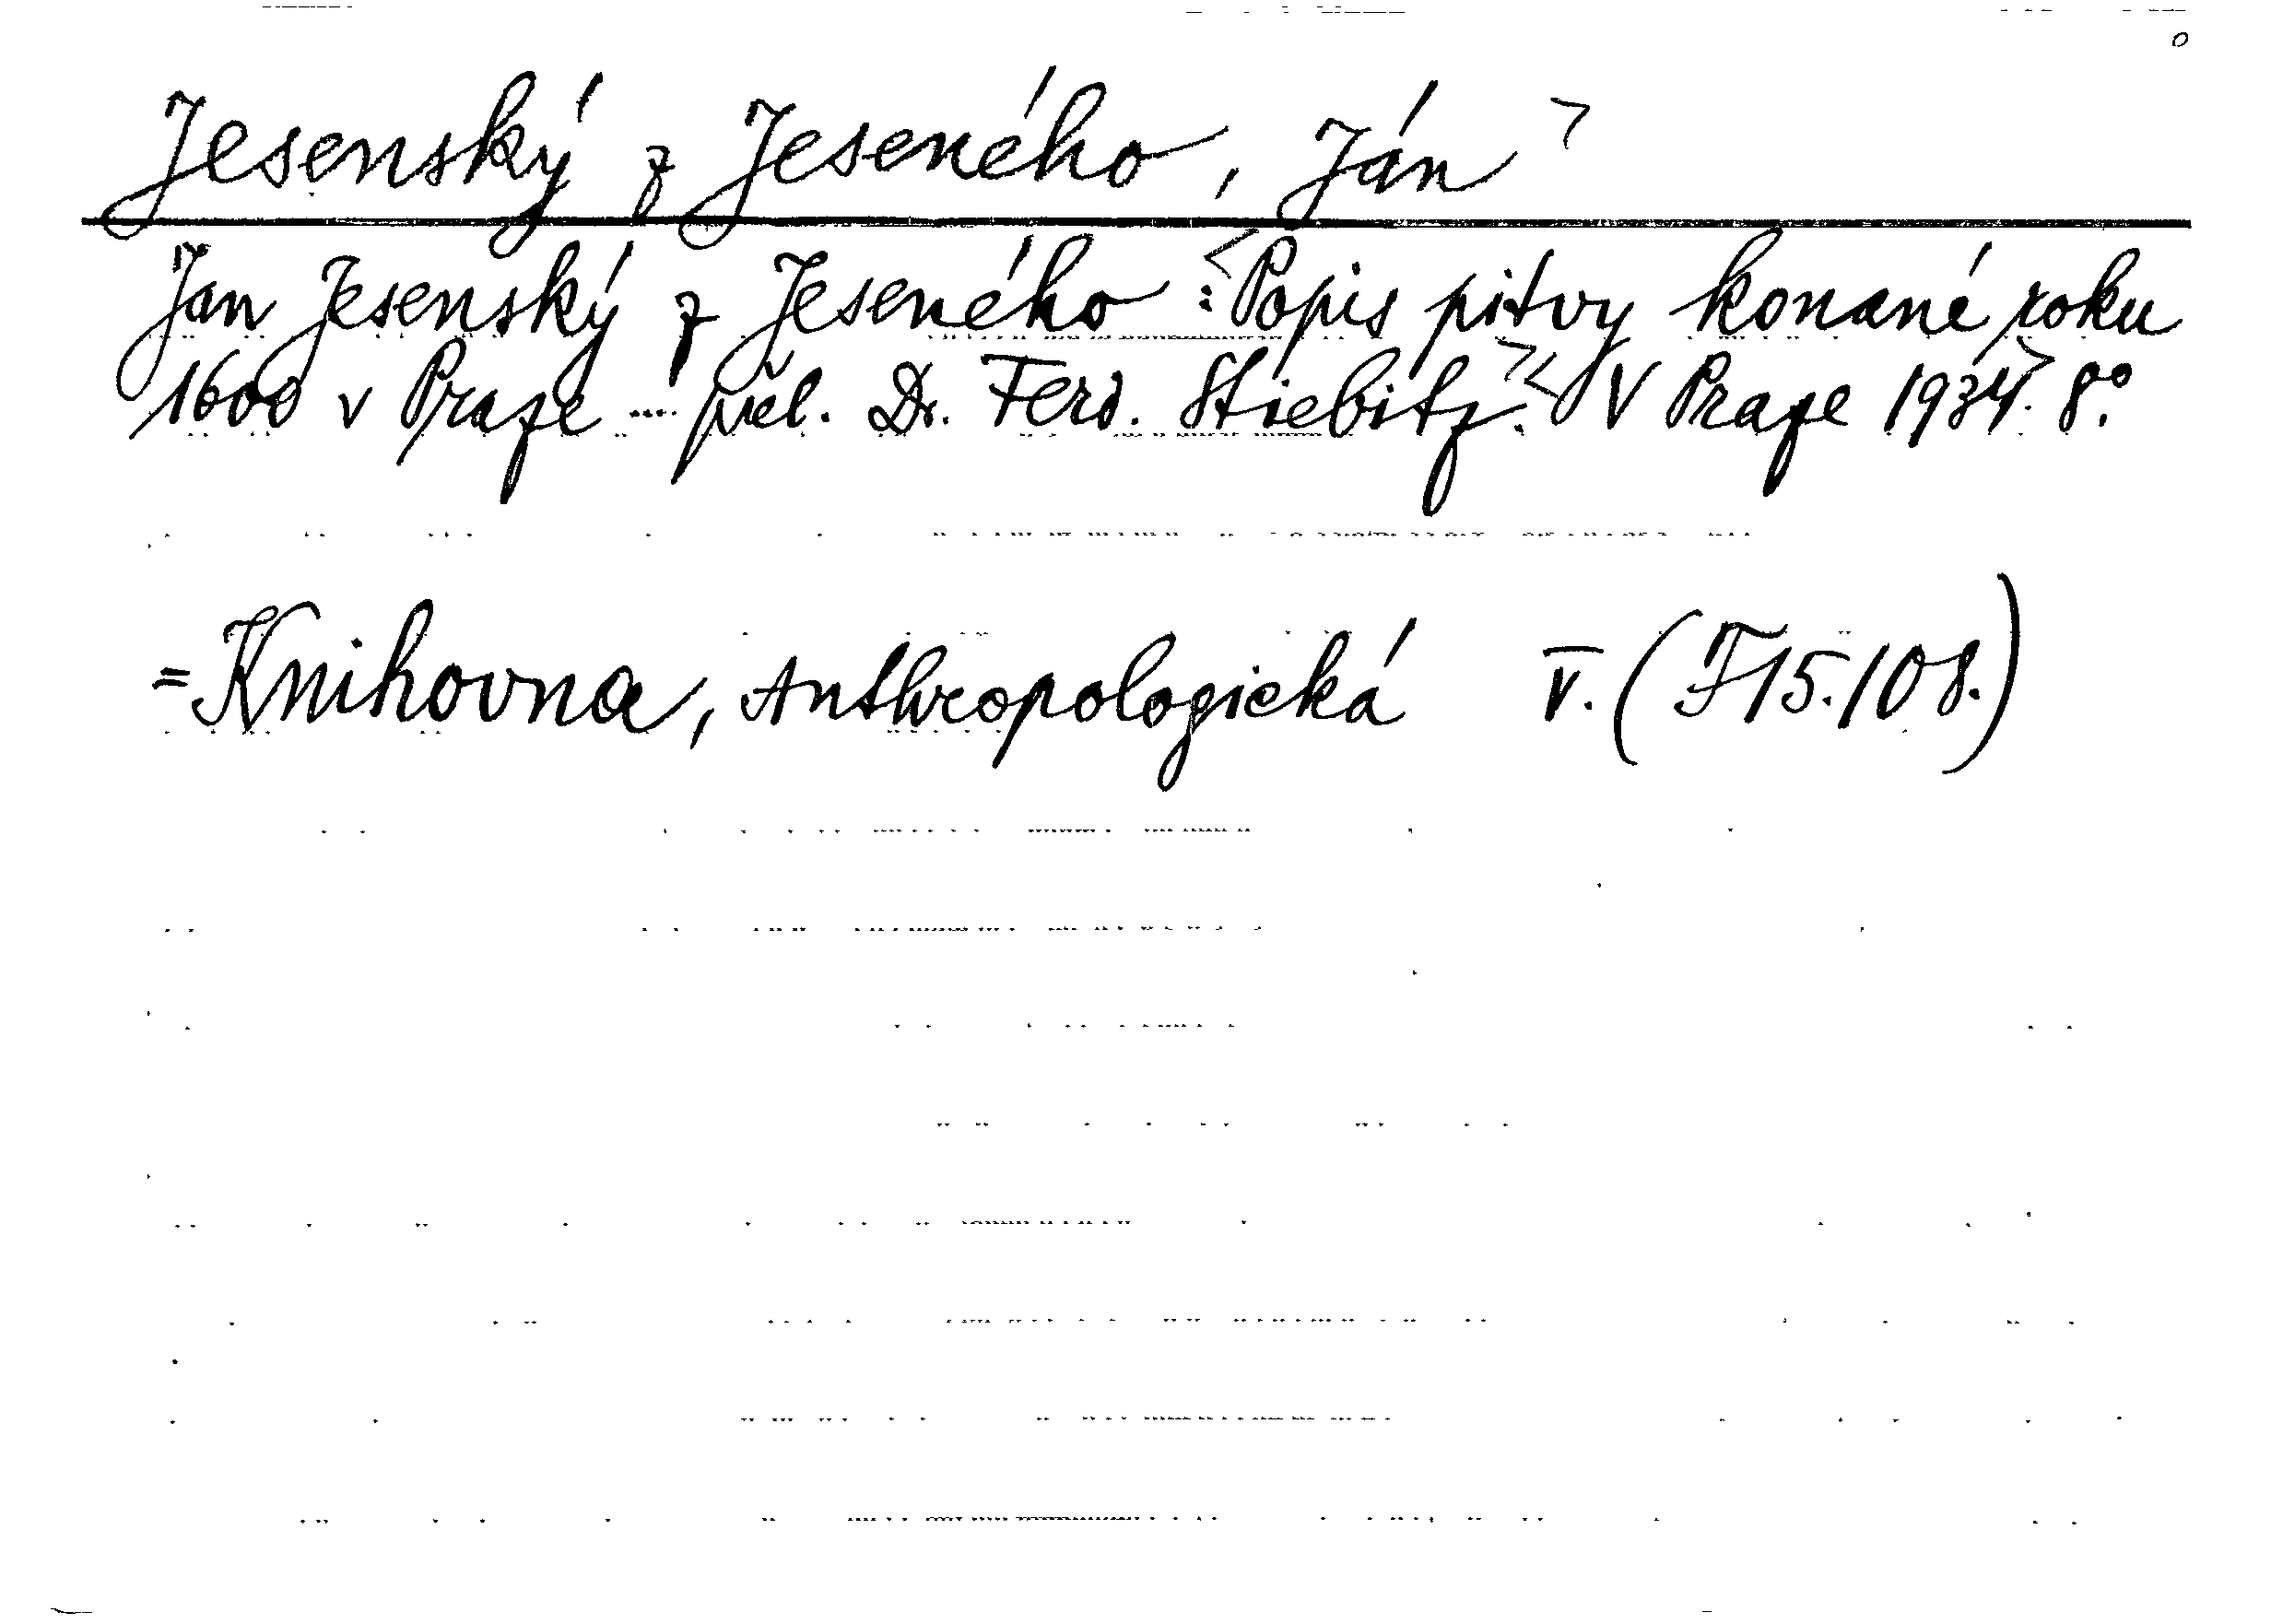 Jesenský z Jeseného, Ján
Jan Jesenský z Jeseného: Popis pitvy konané roku
1600 v Praze ... přel. Dr. Ferd. Stiebitz. V Praze 1934. 8°.
= Knihovna, Anthropologická V. (F15./08.)